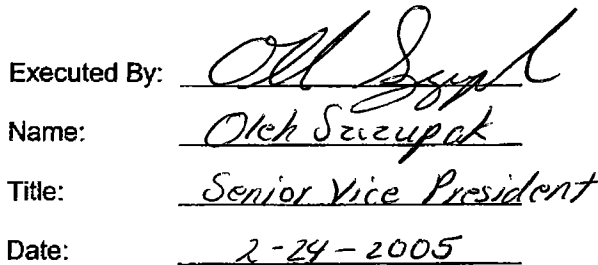 Executed By:
Name: Oleh Szczupak
Title: Senior Vice President
Date: 2-24-2005